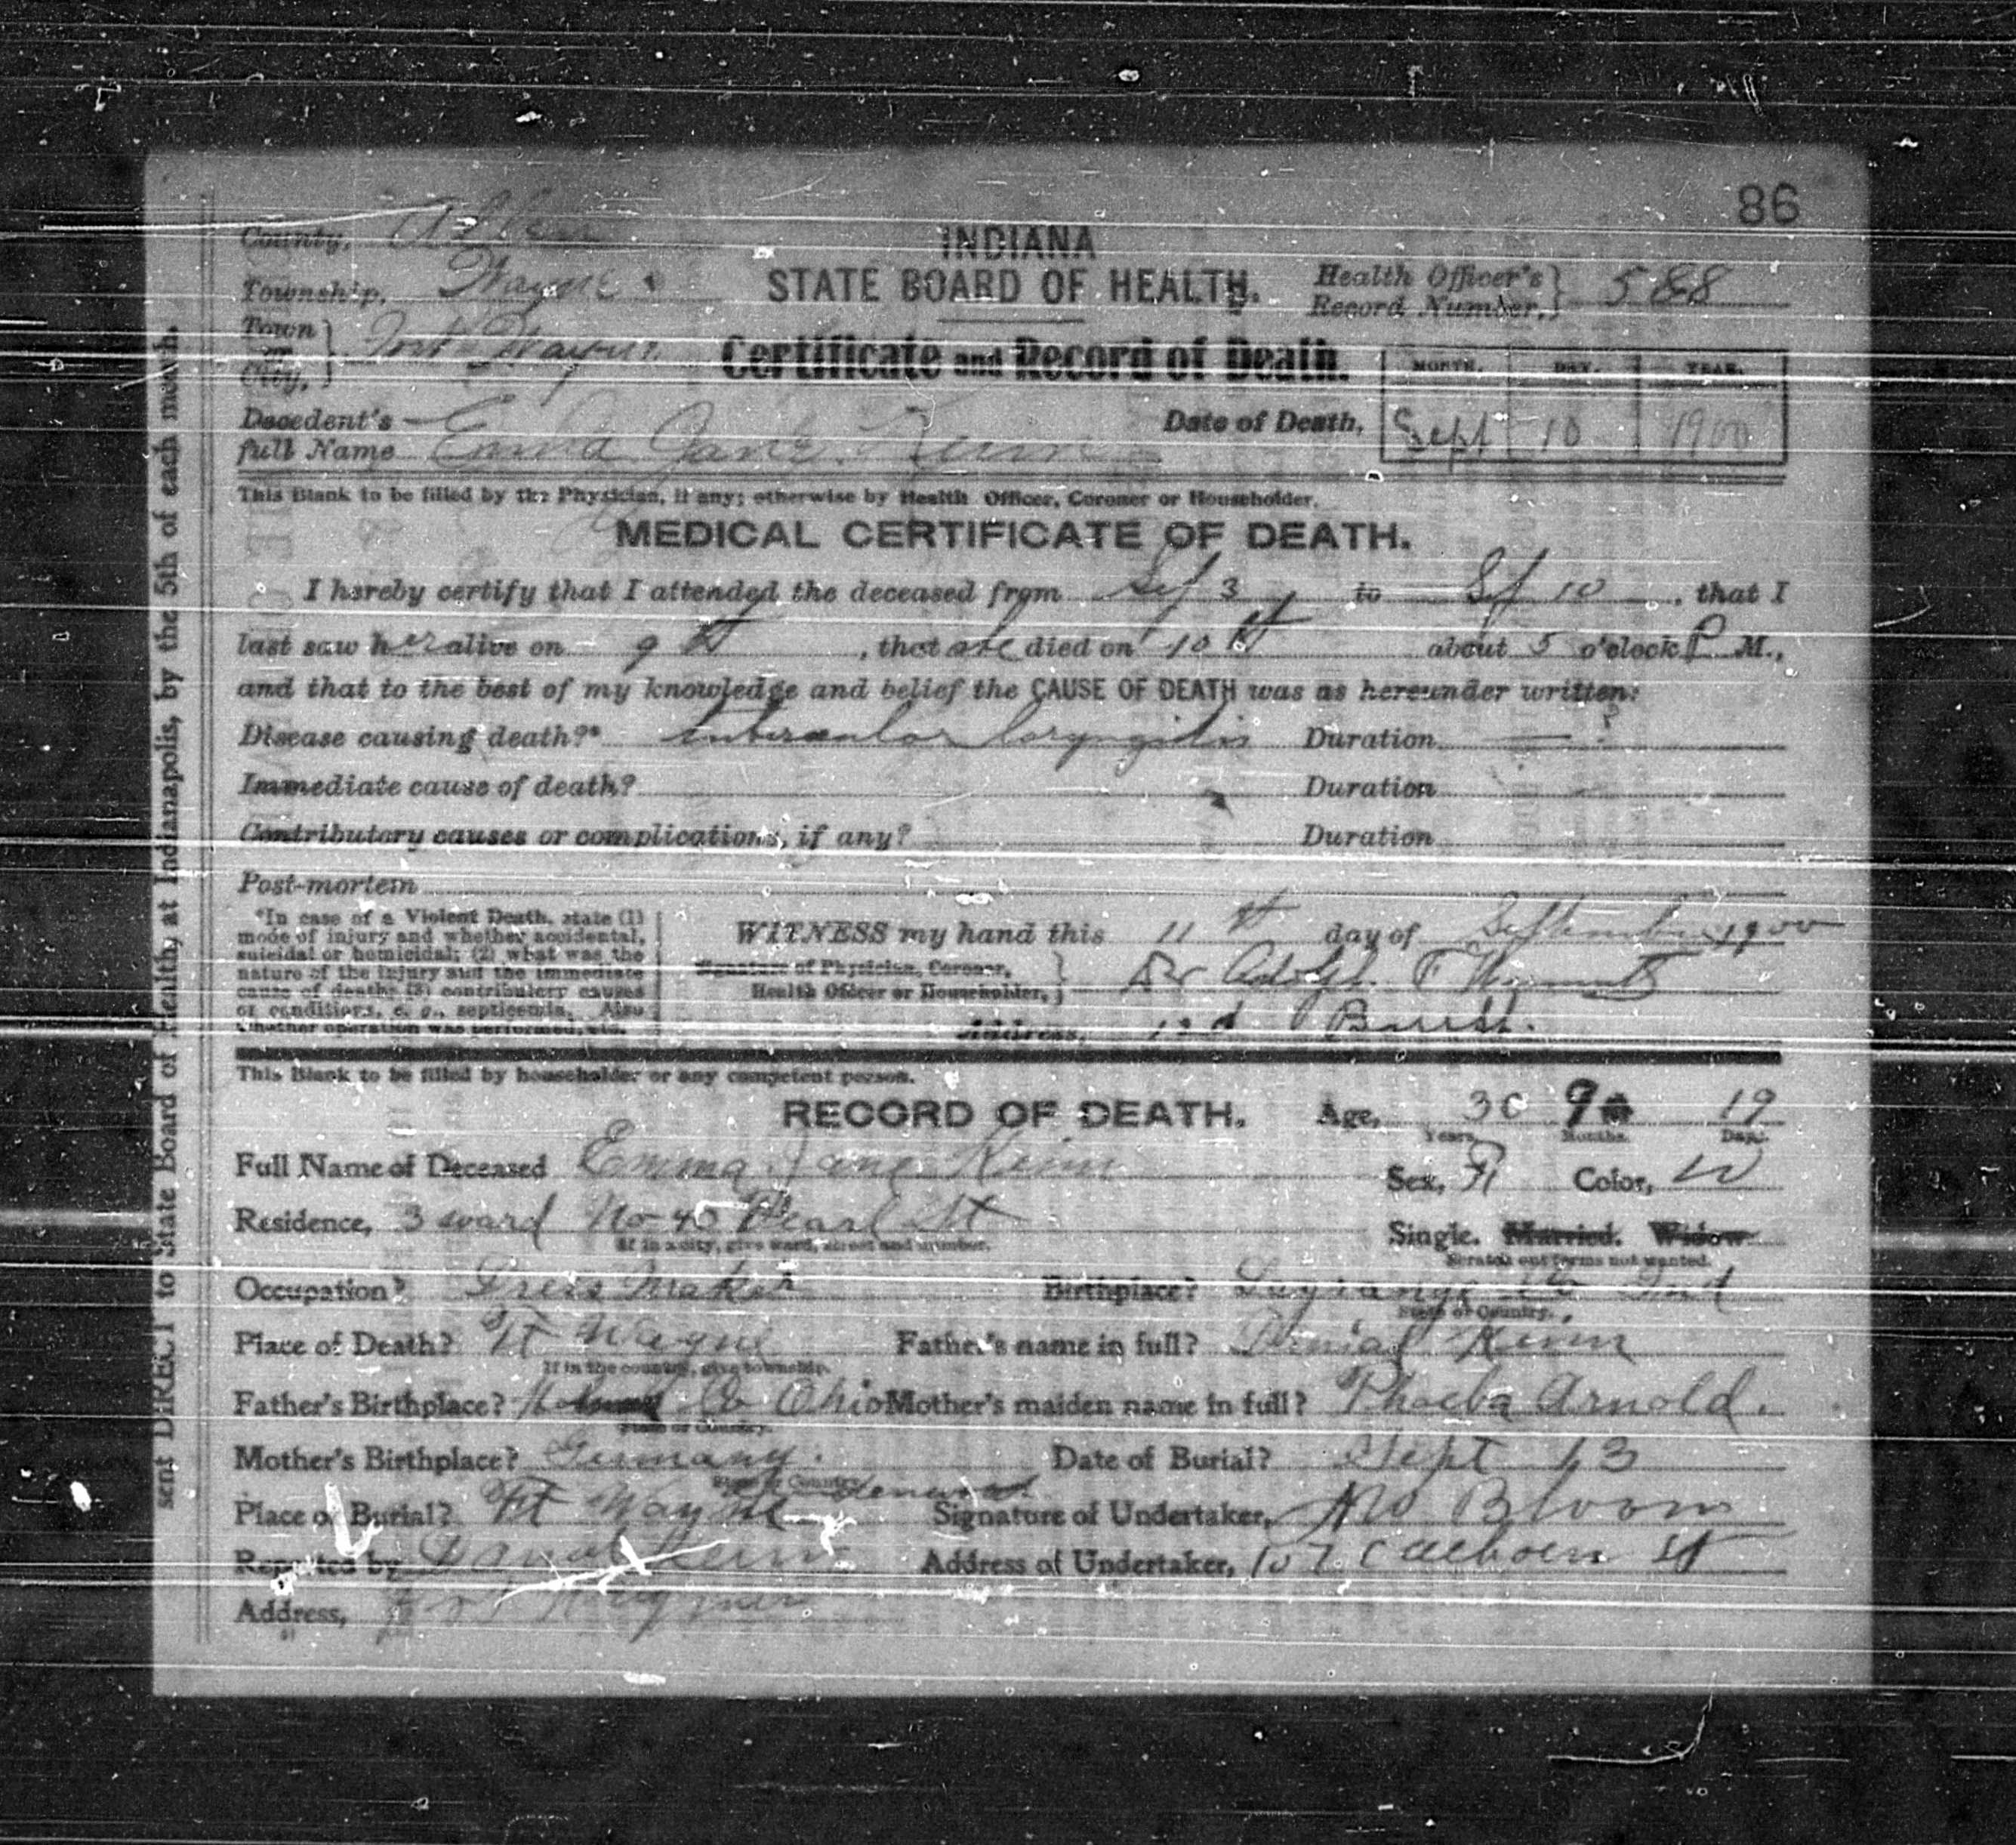 86
County, Allen
INDIANA
Township, Wayne
STATE BOARD OF HEALTH.
Health Officer's
Record Number, 588
Town
or
City, Fort Wayne
Certificate and Record of Death.
MONTH. DAY. YEAR.
Decedent's
full Name Emma Jane Keim
Date of Death, Sept 10 1900
This Blank to be filled by the Physician, if any; otherwise by Health Officer, Coroner or Householder.
MEDICAL CERTIFICATE OF DEATH.
I hereby certify that I attended the deceased from Sep 3 to Sep 10, that I
last saw her alive on 9th, that she died on 10th about 5 o'clock P M.,
and that to the best of my knowledge and belief the CAUSE OF DEATH was as hereunder written:
Disease causing death?* tubercular laryngitis Duration — ?
Immediate cause of death? Duration
Contributory causes or complications, if any? Duration
Post-mortem
*In case of a Violent Death, state (1)
mode of injury and whether accidental,
suicidal or homicidal; (2) what was the
nature of the injury and the immediate
cause of death; (3) contributory causes
or conditions, e. g., septicemia. Also
whether operation was performed, etc.
WITNESS my hand this 11th day of September 1900
Signature of Physician, Coroner,
Health Officer or Householder, Dr Adolph
Address,
This Blank to be filled by householder or any competent person.
RECORD OF DEATH. Age, 30 9 19
Years. Months. Days.
Full Name of Deceased Emma Jane Keim Sex, F Color, W
Residence, 3 ward No 45 Pearl St
If in a city, give ward, street and number.
Single. Married. Widow
Scratch out terms not wanted.
Occupation? Dress Maker Birthplace? Lagrange Co Ind
State or Country.
Place of Death? Ft Wayne Father's name in full? Danial Keim
If in the country, give township.
Father's Birthplace? Co Ohio Mother's maiden name in full? Phoeba Arnold.
State or Country.
Mother's Birthplace? Germany. Date of Burial? Sept 13
State or Country.
Place of Burial? Ft Wayne Signature of Undertaker, Bloom
Reported by Danial Keim Address of Undertaker, 107 Calhoun St
Address, Fort Wayne
sent DIRECT to State Board of Health, at Indianapolis, by the 5th of each month.